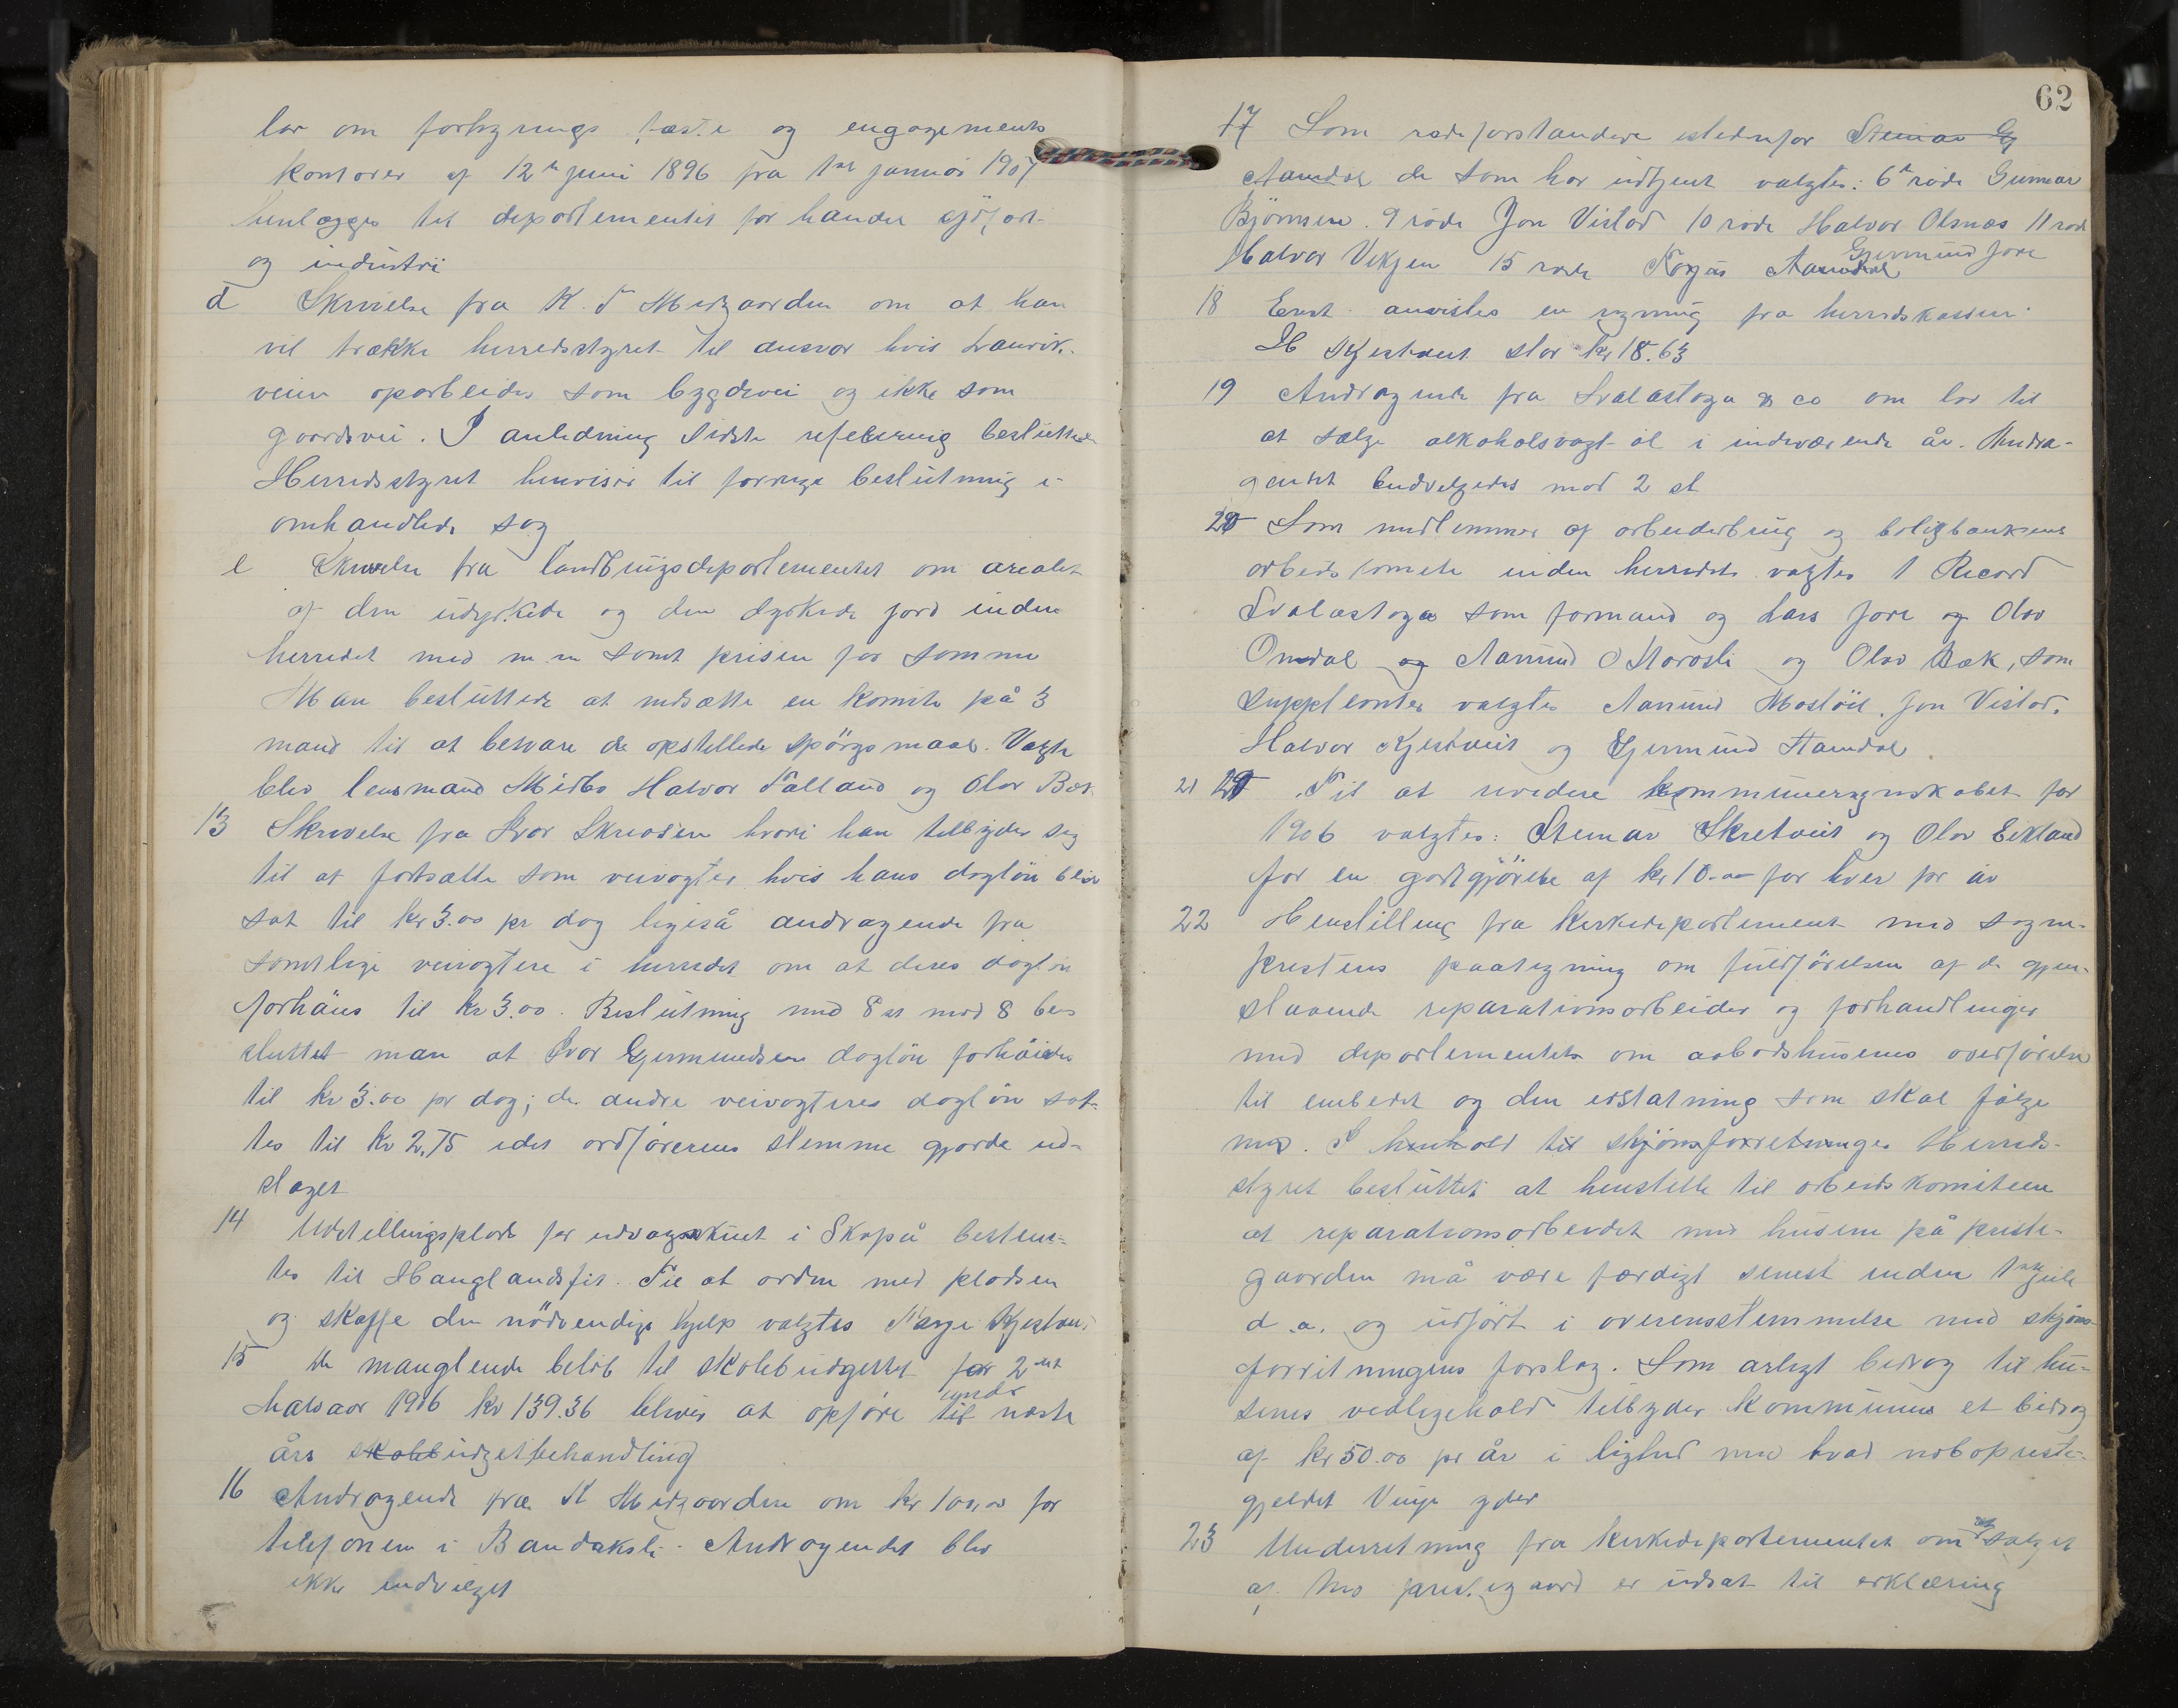 lov om forhyrings fæste og engagements
kontorer af 12te juni 1896 fra 1ste januar 1907
henlægges til departementet for handel sjöfart
og industri
d Skrivelse fra K. T Midgaarden om at han
vil trække herredsstyret til ansvar hvis
veien oparbeides som bygdevei og ikke som
gaardsvei. I anledning sidste referering besluttede
Herredsstyret henviser til forrige beslutning i
omhandlede sag
e Skrivelse fra landbrugsdepartementet om arealet
af den udyrkede og den dyrkede jord inden
herredet med m. m samt prisen for samme
Man besluttede at nedsætte en komite på 3
mand til at besvare de opstillede spörgsmaal. Valgte
blev lensmand Midbö Halvor Falland og Olav Bæk
13 Skrivelse fra Ivar Skreosen hvori han tilbyder seg
til at fortsætte som veivogter hvis hans daglön blir
sat til kr 3.00 pr dag ligeså andragende fra
samtlige veivogtere i herredet om at deres daglön
forhöies til kr 3.00. Beslutning med 8 st mod 8 bes
sluttet man at Ivar Gjermundsens daglön forhöies
til kr 3.00 pr dag; de andre veivogteres daglön sat-
tes til kr 2,75 idet ordförerens stemme gjorde ud-
slaget
14 Udstillingsplads for udvagskuet i Skapå bestem-
tes til Hauglandsfit. Til at ordne med pladsen
og skaffe den nödvendige hjelp valgtes Targe Kjestveit
15 De manglende belöb til skolebudgettet for 2det
halvaar 1906 kr 139.36 blives at opföre til under næste
års skolebudgetbehandling
16 Andragende fra K Midgaarden om kr 100,00 for
telefonen i Bandaksli. Andragendet blev
ikke indvilget
62
17 Som rodeforstandere istedenfor Steinar G
Aamdal de som har udtjent valgtes: 6te rode Gunnar
Björnsen. 9 rode Jon Vistad 10 rode Halvor Olsnæs 11 rode
Halvor Vekjen 15 rode Targus Aamdal Gjermund Jore
18 Endt. anvistes en regning fra herredskassen
H Kjestveit stor kr 18.63
19 Andragende fra Svalastoga & co om lov til
at sælge alkoholsvagt öl i indeværende år. Andra-
gendet indvilgedes mod 2 st
20 Som medlemmer af arbeiderbrug og boligbankens
arbeidskomite inden herredet valgtes 1 Ricard
Svalastoga som formand og Lars Jore og Olav
Omdal og Aamund O Storosli og Olav Bæk, som
Suppleanter valgtes Aamund Mostöil. Jon Vistad.
Halvor Kjestveit og Gjermund Aamdal
21 Til at revidere kommuneregnskabet for
1906 valgtes: Steinar Skretveit og Olav Eikland
for en godtgjörelse af kr 10.00 for hver pr år
22 Henstilling fra kirkedepartement med sogne-
prestens paategning om fuldförelsen af de gjen-
staaende reparationsarbeider og forhandlinger
med departementet om aabodshusenes overförelse
til embedet og den erstatning som skal fölge
med. I henhold til skjönsforretninger Herreds-
styret besluttet at henstille til arbeidskomiteen
at reparationsarbeidet med husene på preste-
gaarden må være færdigt senest inden 1ste juli
d. a. og udfört i overensstemmelse med skjöns-
forretningens forslag. Som årligt bidrag til hu-
senes vedligehold tilbyder kommunen et bidrag
af kr 50.00 pr år i lighed med hvad nabopreste-
gjeldet Vinje yder
23 Underretning fra kirkedepartementet om at salget
af Mo prestegaard er udsat til erklæring